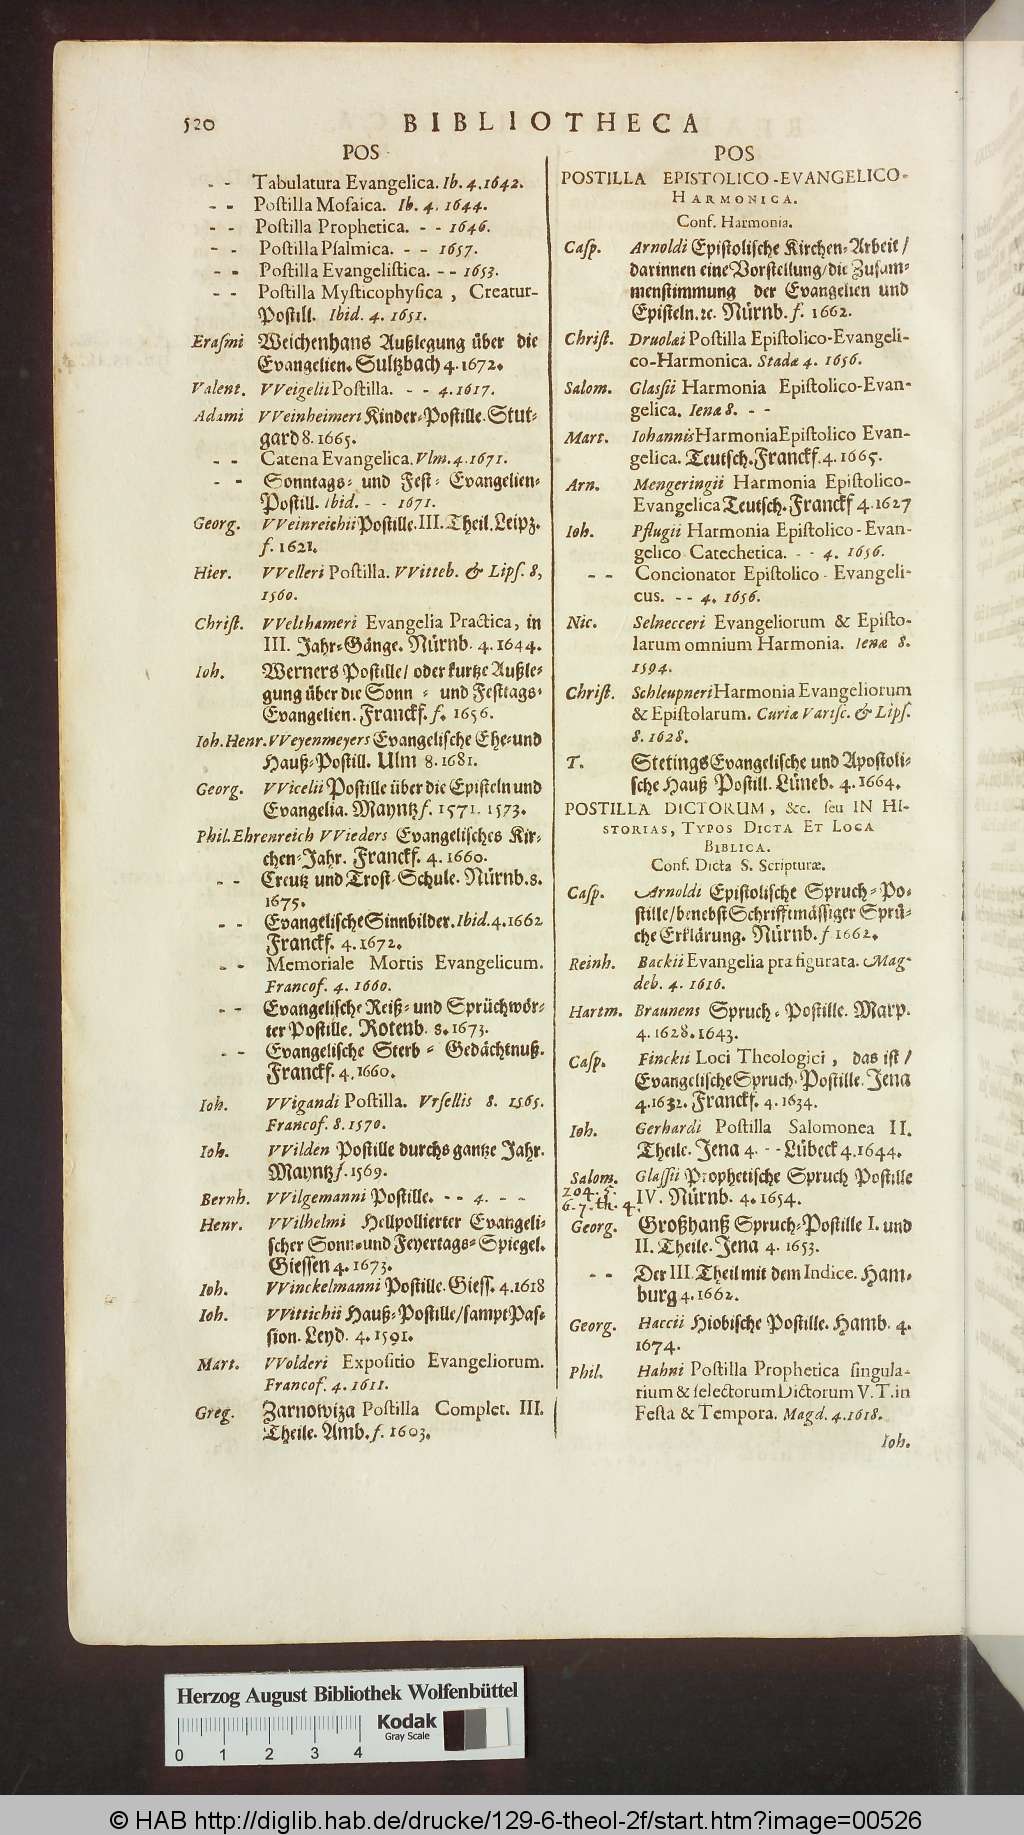 520 BIBLIOTHECA
POS
- - Tabulatura Evangelica. Ib. 4. 1642.
- - Poſtilla Moſaica. Ib. 4. 1644.
- - Poſtilla Prophetica. - - 1646.
- - Poſtilla Pſalmica. - - 1657.
- - Poſtilla Evangeliſtica. - - 1653.
- - Poſtilla Myſticophyſica, Creatur-
Poſtill. Ibid. 4. 1651.
Eraſmi Weichenhans Außlegung über die
Evangelien. Sultzbach 4. 1672.
Valent. VVeigelii Poſtilla. - - 4. 1617.
Adami VVeinheimeri Kinder-Poſtille. Stut-
gard 8. 1665.
- - Catena Evangelica. Vlm. 4. 1671.
- - Sonntags- und Feſt- Evangelien-
Poſtill. Ibid. - - 1671.
Georg. VVeinreichii Poſtille. III. Theil. Leipz.
f. 1621.
Hier. VVelleri Poſtilla. VVitteb. & Lipſ. 8,
1560.
Chriſt. VVelthameri Evangelia Practica, in
III. Jahr-Gänge. Nürnb. 4. 1644.
Ioh. Werners Poſtille/ oder kurtze Außle-
gung über die Sonn - und Feſttags-
Evangelien. Franckf. f. 1656.
Ioh. Henr. VVeyenmeyers Evangeliſche Ehe- und
Hauß-Poſtill. Ulm 8. 1681.
Georg. VVicelii Poſtille über die Epiſteln und
Evangelia. Mayntz f. 1571. 1573.
Phil. Ehrenreich VVieders Evangeliſches Kir-
chen-Jahr. Franckf. 4. 1660.
- - Creutz und Troſt-Schule. Nürnb. 8.
1675.
- - Evangeliſche Sinnbilder. Ibid. 4. 1662
Franckf. 4. 1672.
- - Memoriale Mortis Evangelicum.
Francof. 4. 1660.
- - Evangeliſche Reiß- und Sprüchwör-
ter Poſtille. Rotenb. 8. 1673.
- - Evangeliſche Sterb - Gedächtnuß.
Franckf. 4. 1660.
Ioh. VVigandi Poſtilla. Vrſellis 8. 1565.
Francof. 8. 1570.
Ioh. VVilden Poſtille durchs gantze Jahr.
Mayntz f. 1569.
Bernh. VVilgemanni Poſtille. - - 4. - -
Henr. VVilhelmi Hellpollierter Evangeli-
ſcher Sonn- und Feyertags-Spiegel.
Gieſſen 4. 1673.
Ioh. VVinckelmanni Poſtille. Gieſſ. 4. 1618
Ioh. VVittichii Hauß-Poſtille/ ſampt Paſ-
ſion. Leyd. 4. 1591.
Mart. VVolderi Expoſitio Evangeliorum.
Francof. 4. 1611.
Greg. Zarnowiza Poſtilla Complet. III.
Theile. Amb. f. 1603.
POS
POSTILLA EPISTOLICO-EVANGELICO-
HARMONICA.
Conf. Harmonia.
Caſp. Arnoldi Epiſtoliſche Kirchen-Arbeit/
darinnen eine Vorſtellung/ die Zuſam-
menſtimmung der Evangelien und
Epiſteln. ꝛc. Nürnb. f. 1662.
Chriſt. Druolæi Poſtilla Epiſtolico-Evangeli-
co-Harmonica. Stadæ 4. 1656.
Salom. Glaſſii Harmonia Epiſtolico-Evan-
gelica. Ienæ 8. - -
Mart. Iohannis Harmonia Epiſtolico Evan-
gelica. Teutſch. Franckf. 4. 1665.
Arn. Mengeringii Harmonia Epiſtolico-
Evangelica Teutſch. Franckf 4. 1627
Ioh. Pflugii Harmonia Epiſtolico-Evan-
gelico Catechetica. - - 4. 1656.
- - Concionator Epiſtolico - Evangeli-
cus. - - 4. 1656.
Nic. Selnecceri Evangeliorum & Epiſto-
larum omnium Harmonia. Ienæ 8.
1594.
Chriſt. Schleupneri Harmonia Evangeliorum
& Epiſtolarum. Curiæ Variſc. & Lipſ.
8. 1628.
T. Stetings Evangeliſche und Apoſtoli-
ſche Hauß Poſtill. Lüneb. 4. 1664.
POSTILLA DICTORUM, &c. ſeu IN HI-
STORIAS, TYPOS DICTA ET LOCA
BIBLICA.
Conf. Dicta S. Scripturæ.
Caſp. Arnoldi Epiſtoliſche Spruch-Po-
ſtille/ benebſt Schrifftmäſſiger Sprü-
che Erklärung. Nürnb. f 1662.
Reinh. Backii Evangelia præfigurata. Mag-
deb. 4. 1616.
Hartm. Braunens Spruch-Poſtille. Marp.
4. 1628. 1643.
Caſp. Finckii Loci Theologici, das iſt/
Evangeliſche Spruch-Poſtille. Jena
4. 1632. Franckf. 4. 1634.
Ioh. Gerhardi Poſtilla Salomonea II.
Theile. Jena 4. - - Lübeck 4. 1644.
Salom. Glaſſii Prophetiſche Spruch Poſtille
IV. Nürnb. 4. 1654.
204. 5.
6. 7. th. 4.
Georg. Großhanß Spruch-Poſtille I. und
II. Theile. Jena 4. 1653.
- - Der III. Theil mit dem Indice. Ham-
burg 4. 1662.
Georg. Haccii Hiobiſche Poſtille. Hamb. 4.
1674.
Phil. Hahni Poſtilla Prophetica ſingula-
rium & ſelectorum Dictorum V. T. in
Feſta & Tempora. Magd. 4. 1618.
Ioh.
Herzog August Bibliothek Wolfenbüttel
Kodak
Gray Scale
0 1 2 3 4
© HAB http://diglib.hab.de/drucke/129-6-theol-2f/start.htm?image=00526